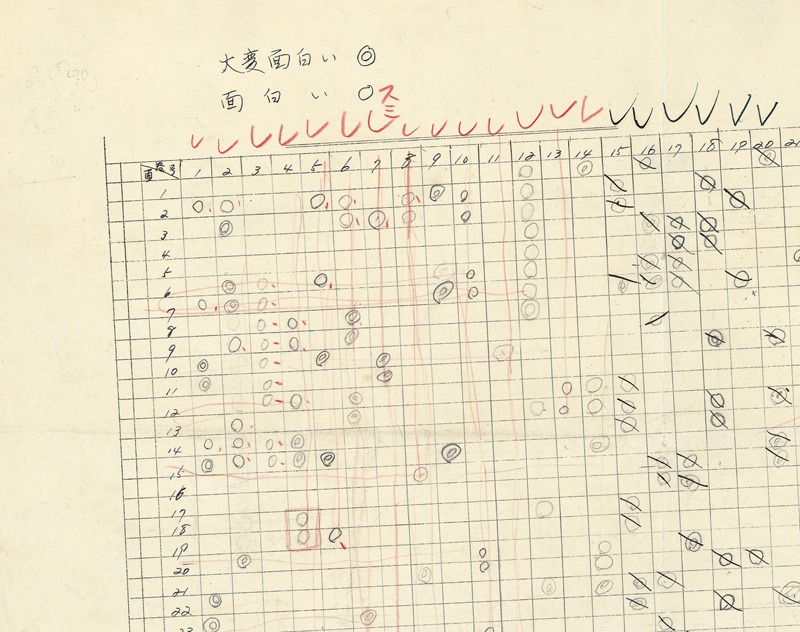 大変面白い ◎
面白い ○ スミ
巻号 頁 1 2 3 4 5 6 7 8 9 10 11 12 13 14 15 16 17 18 19 20 21
1
2
3
4
5
6
7
8
9
10
11
12
13
14
15
16
17
18
19
20
21
22
23